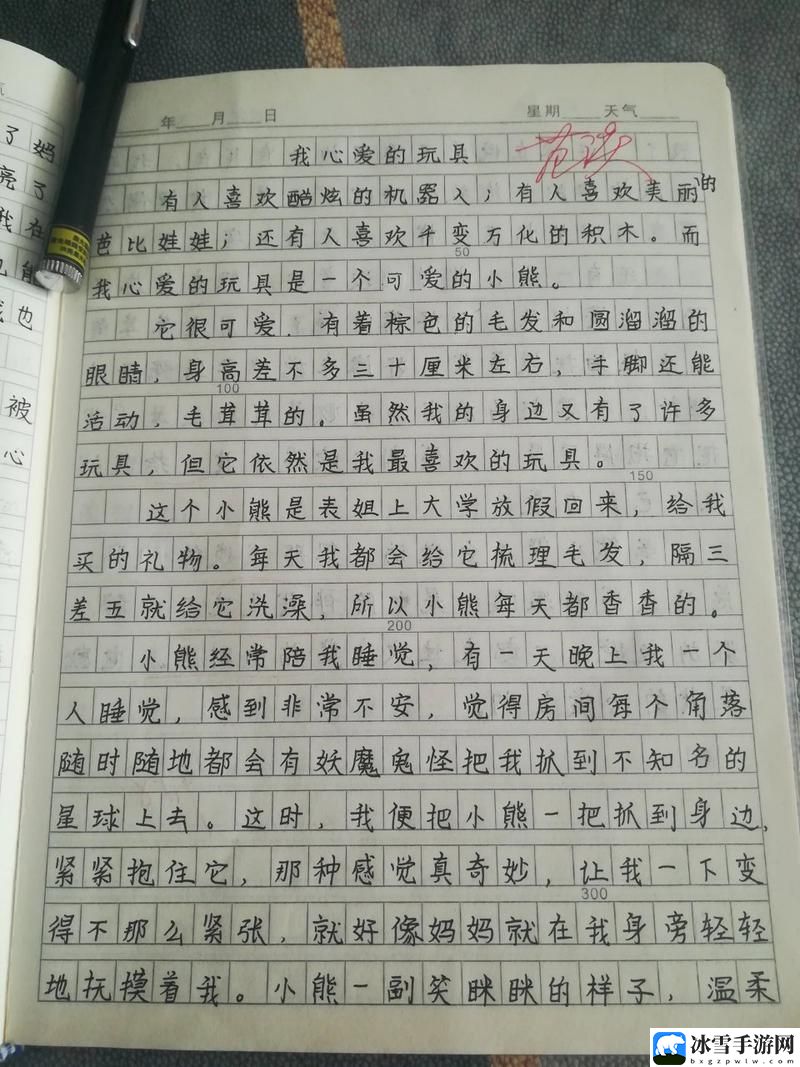 了妈
亮了
我在
也能
我也
被
心
年 月 日 星期 天气
我心爱的玩具
有人喜欢酷炫的机器人；有人喜欢美丽的
芭比娃娃；还有人喜欢千变万化的积木。而
50
我心爱的玩具是一个可爱的小熊。
它很可爱．有着棕色的毛发和圆溜溜的
眼睛，身高差不多三十厘米左右，手脚还能
100
活动，毛茸茸的。虽然我的身边又有了许多
玩具，但它依然是我最喜欢的玩具。
150
这个小熊是表姐上大学放假回来，给我
买的礼物。每天我都会给它梳理毛发，隔三
差五就给它洗澡，所以小熊每天都香香的。
200
小熊经常陪我睡觉，有一天晚上我一个
人睡觉，感到非常不安，觉得房间每个角落
随时随地都会有妖魔鬼怪把我抓到不知名的
星球上去。这时，我便把小熊一把抓到身边，
紧紧抱住它，那种感觉真奇妙，让我一下变
300
得不那么紧张，就好像妈妈就在我身旁轻轻
地抚摸着我。小熊一副笑眯眯的样子，温柔
冰雪手游网
bxgzpwlw.com